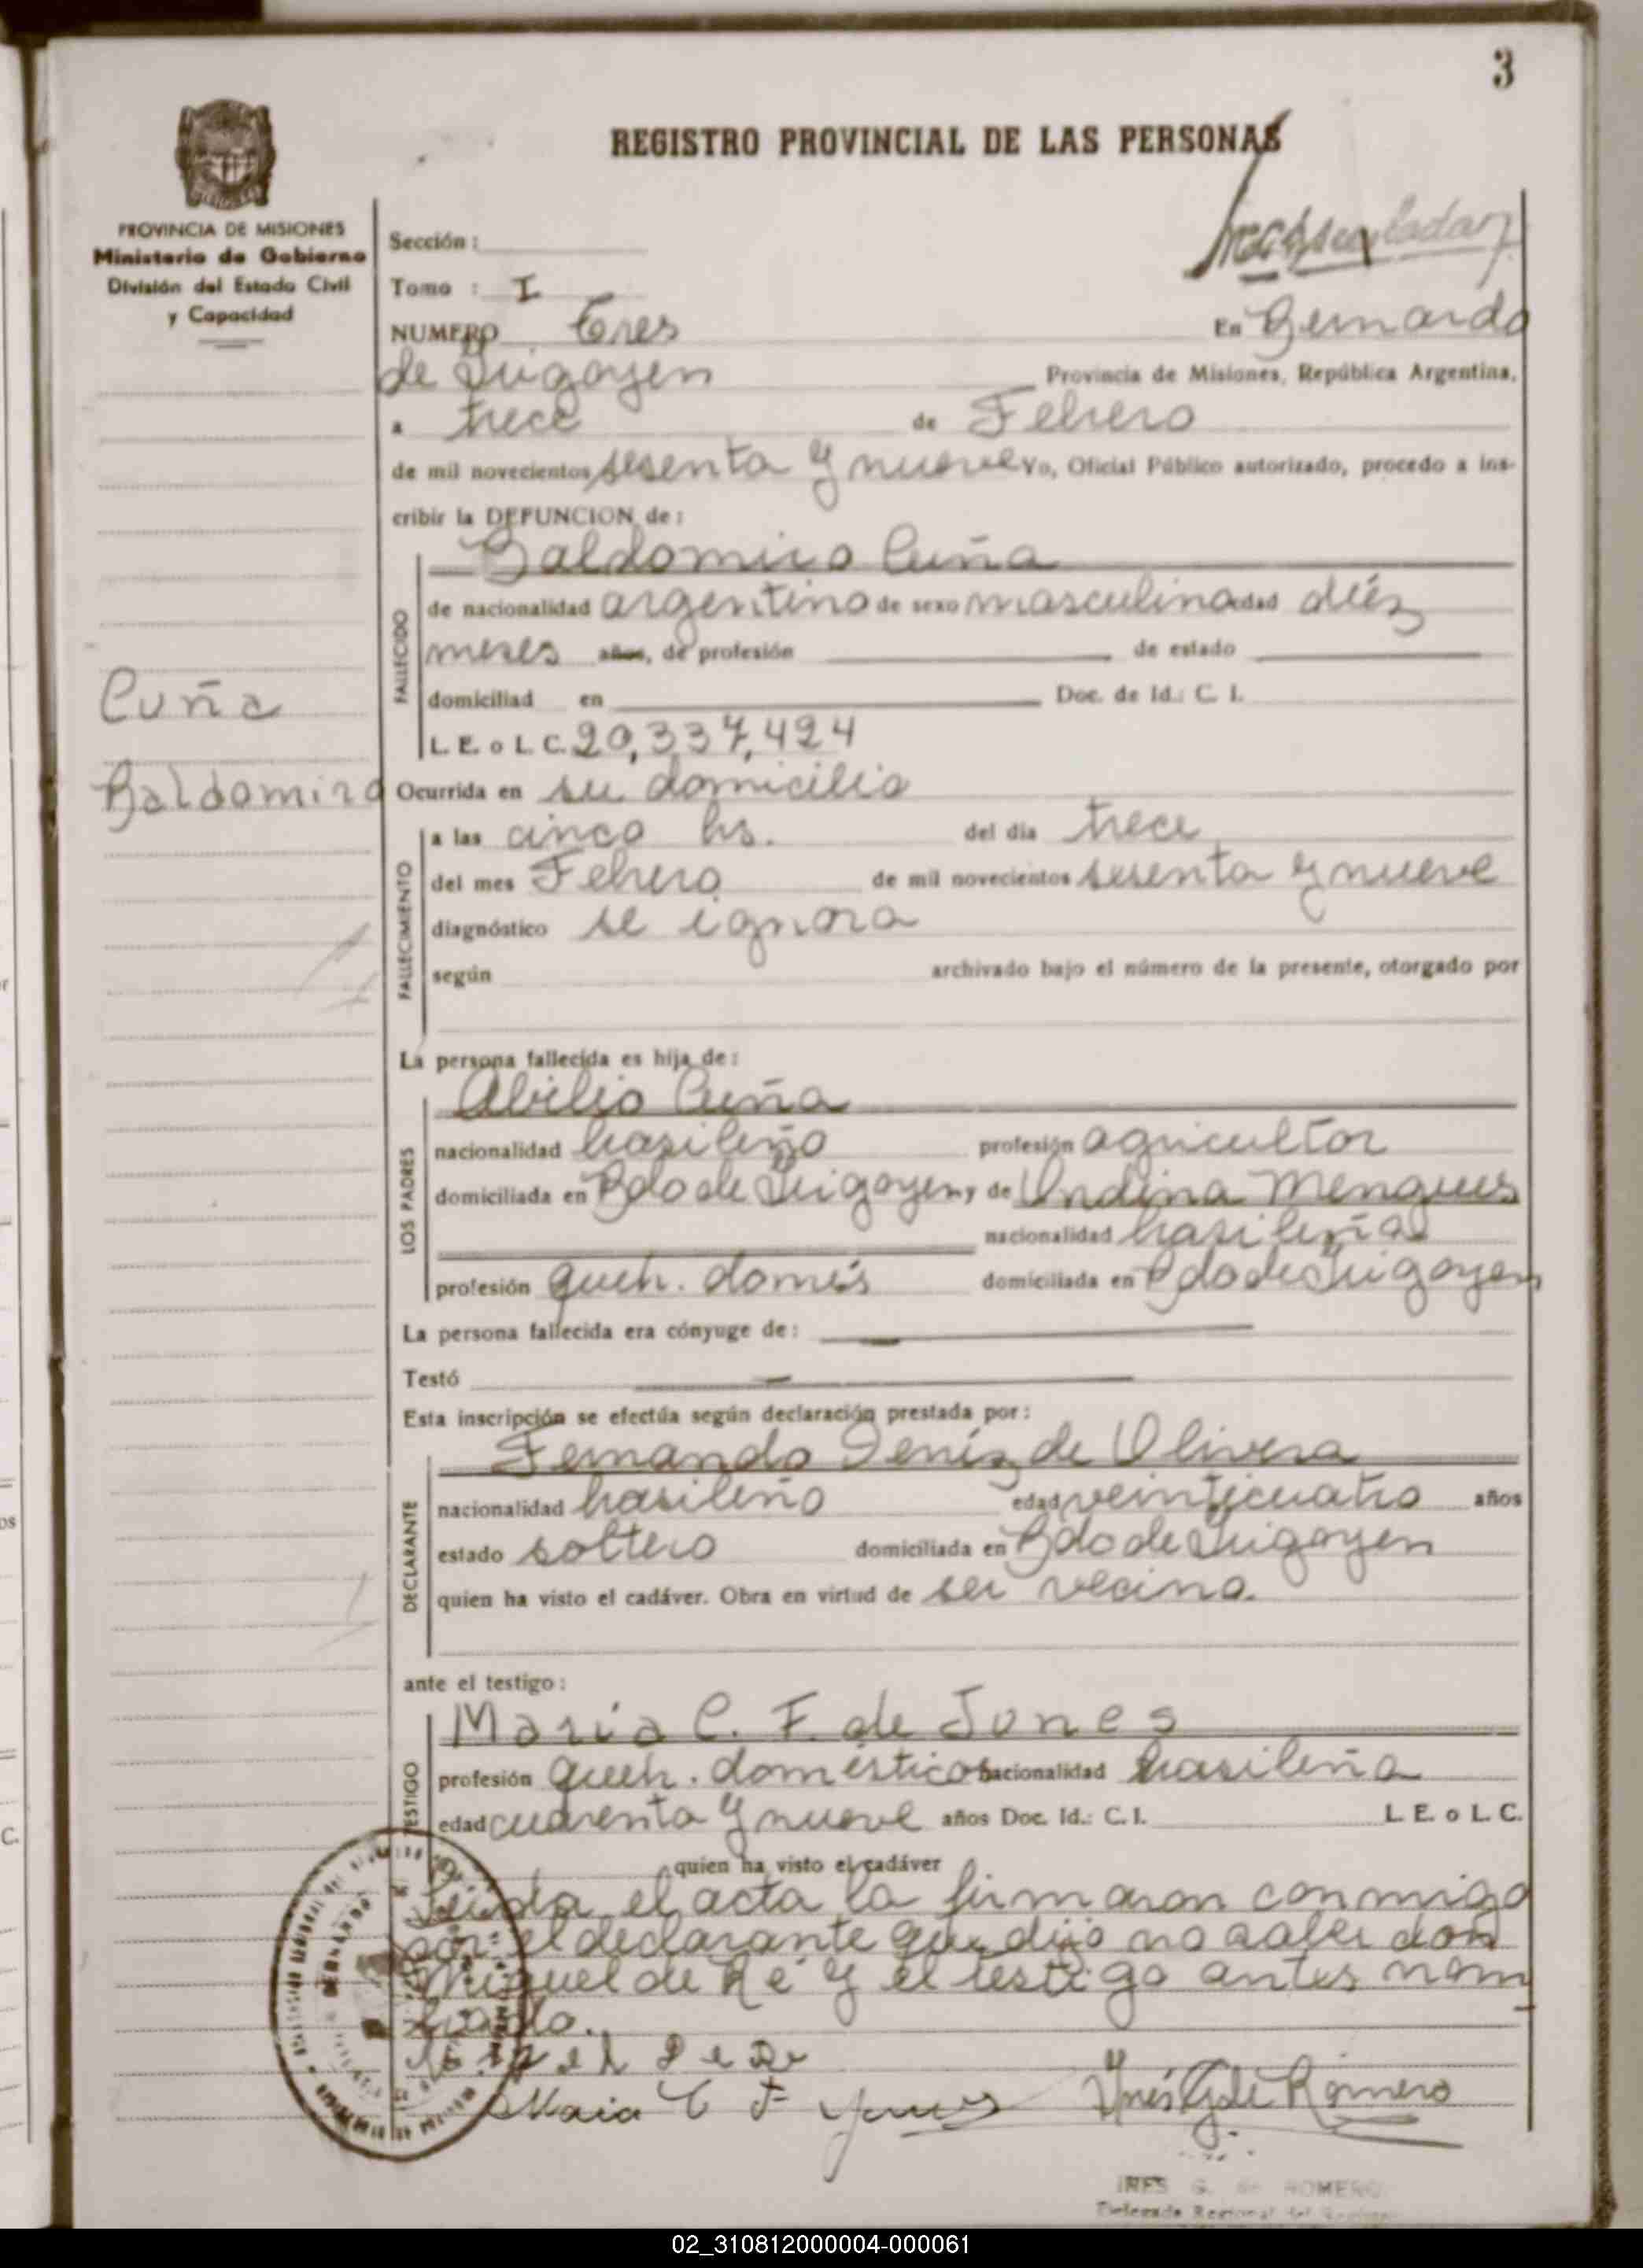 3
REGISTRO PROVINCIAL DE LAS PERSONAS
PROVINCIA DE MISIONES
Ministerio de Gobierno
División del Estado Civil
y Capacidad
Sección :
Tomo : I
NUMERO Tres En Bernardo
de Irigoyen Provincia de Misiones, República Argentina,
a trece de Febrero
de mil novecientos sesenta y nueve Yo, Oficial Público autorizado, procedo a ins-
cribir la DEFUNCION de :
Baldomiro Cuña
FALLECIDO
de nacionalidad argentino de sexo masculino edad diéz
meses años, de profesión de estado
domiciliad en Doc. de Id.: C. I.
L. E. o L. C. 20,337,424
Cuña
Baldomiro
Ocurrida en su domicilio
FALLECIMIENTO
a las cinco hs. del día trece
del mes Febrero de mil novecientos sesenta y nueve
diagnóstico se ignora
según archivado bajo el número de la presente, otorgado por
La persona fallecida es hija de :
Abilio Cuña
LOS PADRES
nacionalidad brasileño profesión agricultor
domiciliada en Bdo de Irigoyen y de Undina Mengues
nacionalidad brasileña
profesión queh. domés domiciliada en Bdo de Irigoyen
La persona fallecida era cónyuge de :
Testó
Esta inscripción se efectúa según declaración prestada por :
Fernando Deniz de Olivera
DECLARANTE
nacionalidad brasileño edad veinticuatro años
estado soltero domiciliada en Bdo de Irigoyen
quien ha visto el cadáver. Obra en virtud de ser vecino.
ante el testigo :
Maria C. F. de Jones
TESTIGO
profesión queh. domésticos nacionalidad brasileña
edad cuarenta y nueve años Doc. Id.: C. I. L. E. o L. C.
quien ha visto el cadáver
Leída el acta la firmaron conmigo
por el declarante que dijo no saber don
Miguel de Ré y el testigo antes nom
brado.
Maria C F Inés G de Romero
INES G. de ROMERO
Delegada Regional del
02_310812000004-000061